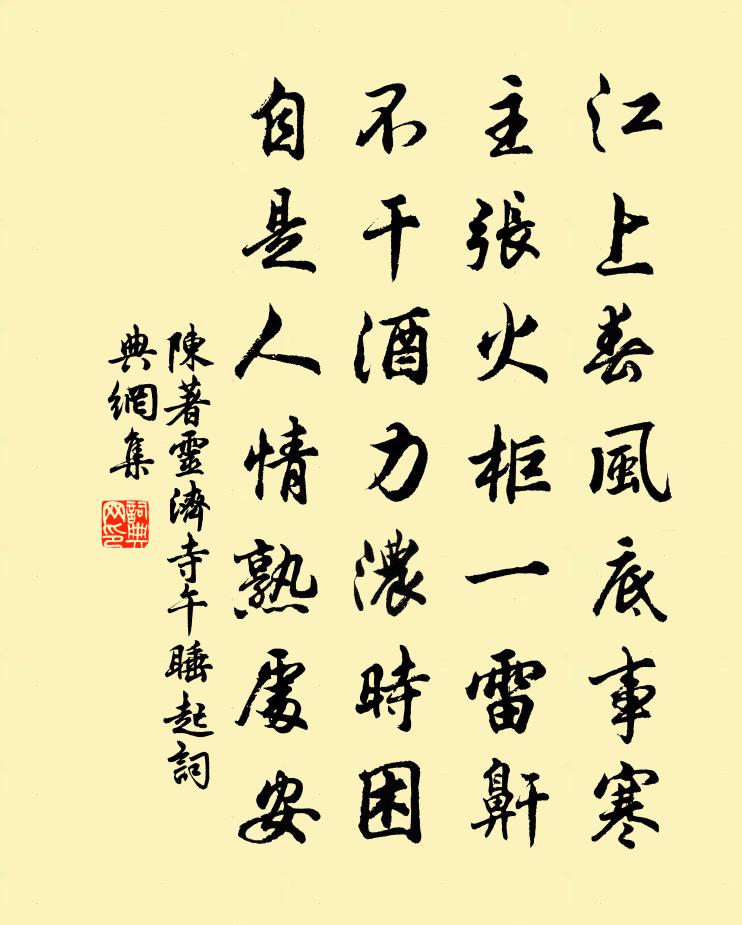 江上春風底事寒
主張火柜一雷鼾
不干酒力濃時困
自是人情熟處安
陳著靈濟寺午睡起詞
典網集
詞典網印